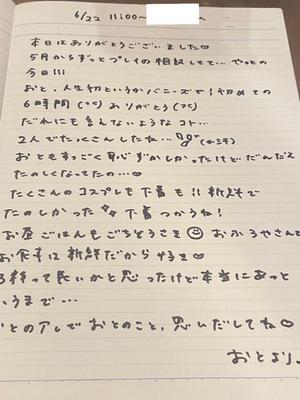 6/22 11:00〜
本日はありがとうございました♡
5月からずっとプレイの相談してて…やっとの
今日!!!
おと、人生初というかバニーズで!初めての
6時間(°С)ありがとう(°С)
だれにも言えないようなコト…
2人でたっくさんしたね…
おともすっごく恥ずかしかったけどだんだん
たのしくなってたの…♡
たくさんのコスプレも下着も!!新鮮で
たのしかった 下着つかうね!
お昼ごはんもごちそうさま おふろやさんで
お食事は新鮮だから
って長いかと思ったけど本当にあっと
うまで…
とのアレでおとのこと、思いだしてね♡
おとより